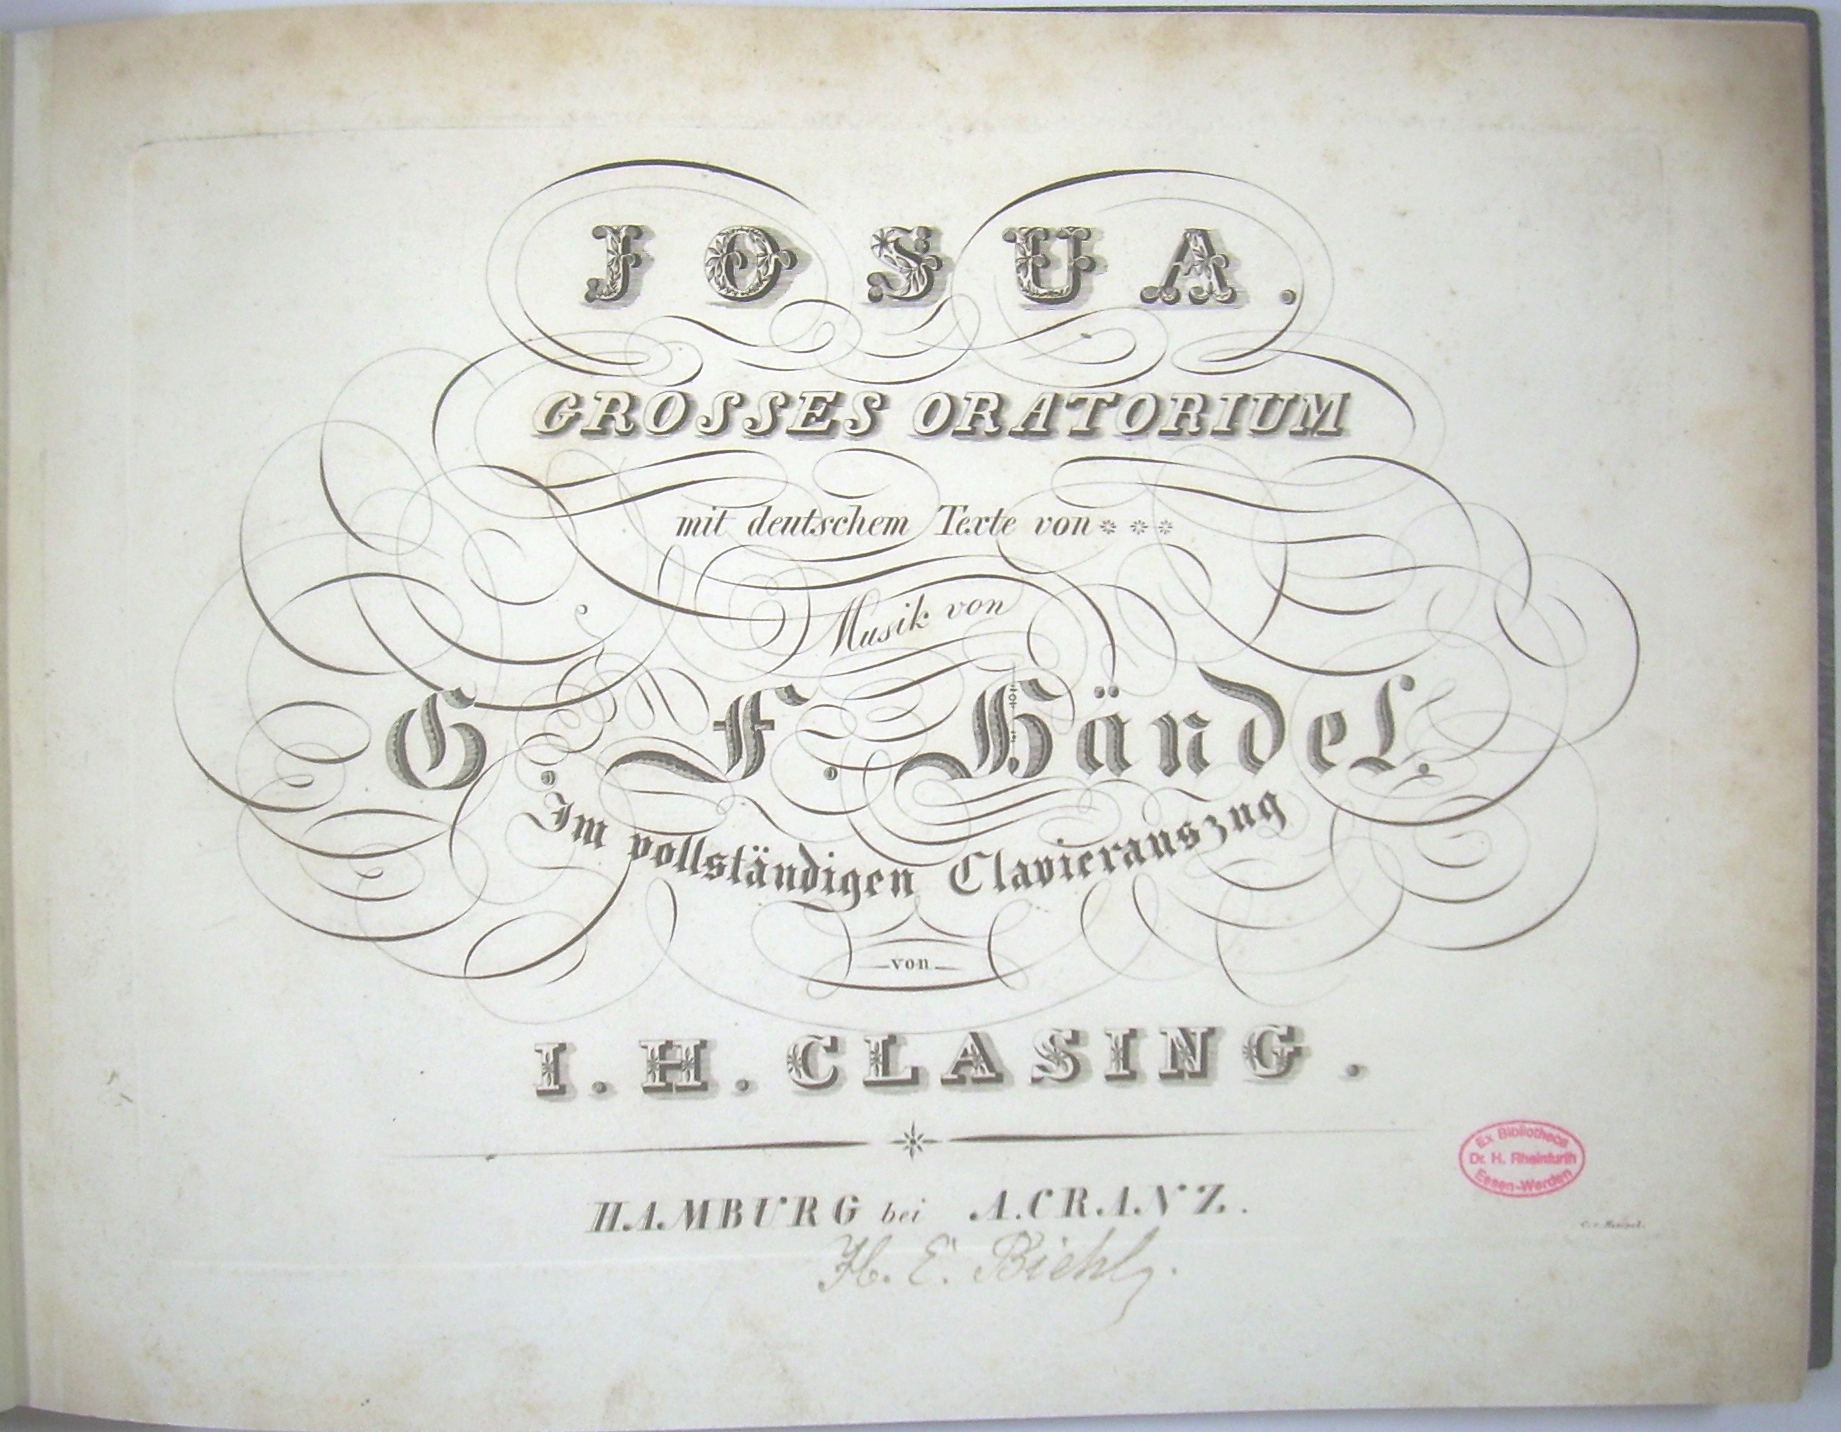 JOSUA.
GROSSES ORATORIUM
mit deutschem Texte von * * *
Musik von
G. F. Händel.
Im vollständigen Clavierauszug
von
I. H. CLASING.
HAMBURG bei A. CRANZ.
H. E. Biehl.
Ex Bibliotheca
Dr. H. Rheinfurth
Essen-Werden